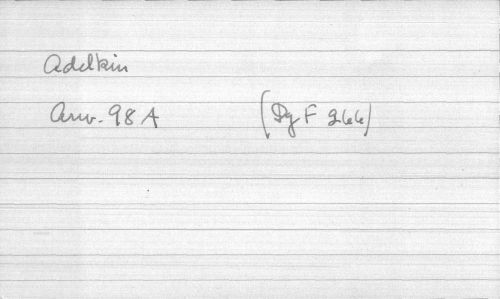 Adelkin
Arw. 98 A (Dg F 266)